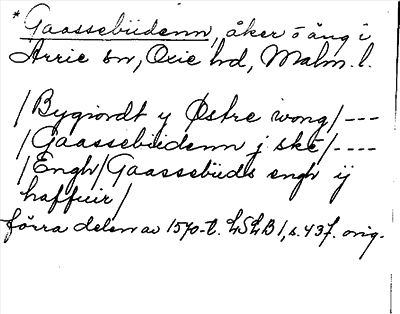 * Gaassebüdenn, åker o äng i
Arrie sn, Oxie hd, Malm. l.
/Bygiordt y Østre wong/---
/Gaassebüdenn j ske/----
/Engh/Gaassebüds engh ij
haffuir/
förra delen av 1570-t. LSLB 1, s. 437. orig.